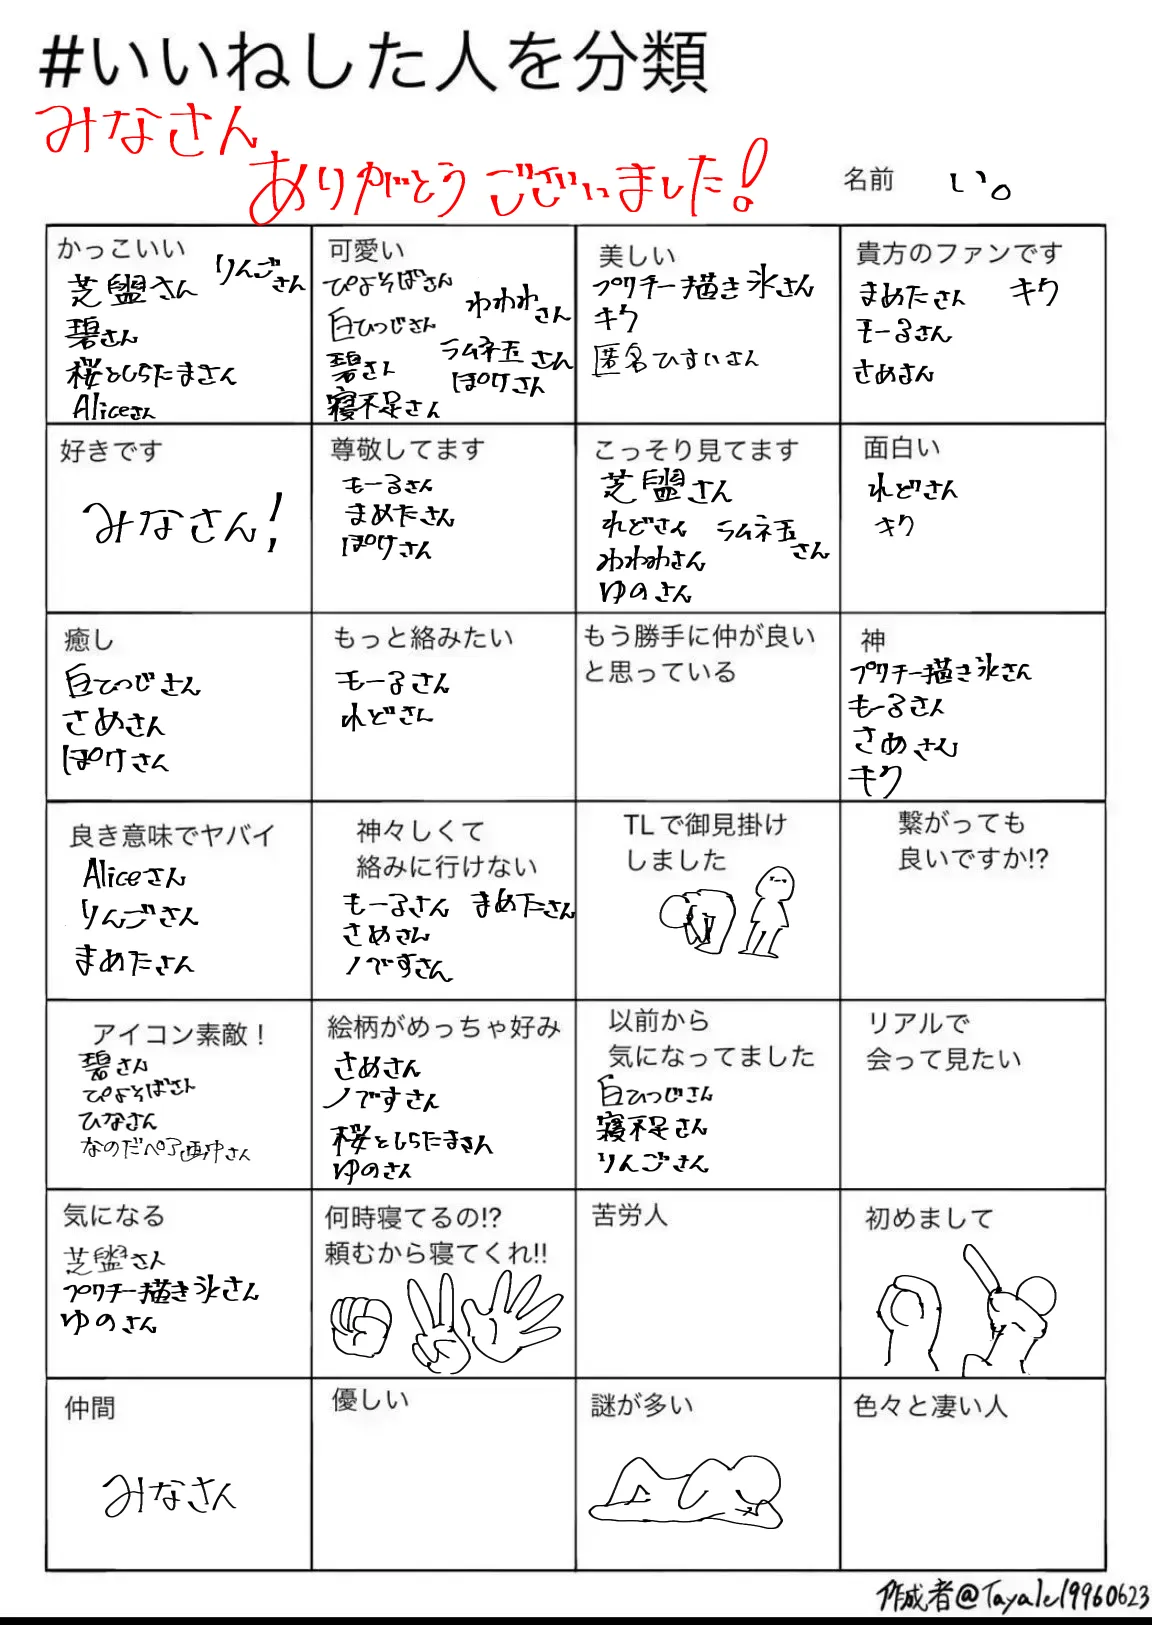 #いいねした人を分類
みなさん
ありがとうございました!
名前 い。
かっこいい
芝盥さん りんごさん
碧さん
桜としらたまさん
Aliceさん
可愛い
ぴよそばさん
わわわさん
白ひつじさん
碧さん
ラムネ玉さん
ぽけさん
寝不足さん
美しい
プワチー描き氷さん
キク
匿名ひすいさん
貴方のファンです
まめたさん キク
もーるさん
さめさん
好きです
みなさん!
尊敬してます
もーるさん
まめたさん
ぽけさん
こっそり見てます
芝盥さん
れどさん ラムネ玉さん
わわわさん
ゆのさん
面白い
れどさん
キク
癒し
白ひつじさん
さめさん
ぽけさん
もっと絡みたい
もーるさん
れどさん
もう勝手に仲が良い
と思っている
神
プワチー描き氷さん
もーるさん
さめさん
キク
良き意味でヤバイ
Aliceさん
りんごさん
まめたさん
神々しくて
絡みに行けない
もーるさん まめたさん
さめさん
ノですさん
TLで御見掛け
しました
繋がっても
良いですか!?
アイコン素敵!
碧さん
ぴよそばさん
ひなさん
絵柄がめっちゃ好み
さめさん
ノですさん
桜としらたまさん
ゆのさん
以前から
気になってました
白ひつじさん
寝不足さん
りんごさん
リアルで
会って見たい
気になる
芝盥さん
プワチー描き氷さん
ゆのさん
何時寝てるの!?
頼むから寝てくれ!!
苦労人
初めまして
仲間
みなさん
優しい
謎が多い
色々と凄い人
作成者@Tayale19960623